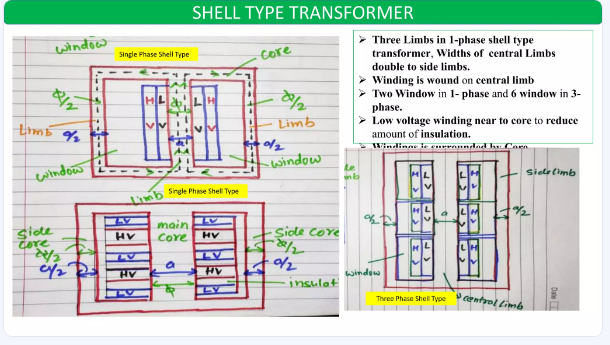 SHELL TYPE TRANSFORMER
window
Single Phase Shell Type
core
Φ/2
Φ/2
H L
L H
Φ
Limb
Limb
a/2
V V
a
V V
a/2
window
window
Limb
Single Phase Shell Type
LV
LV
Side
core
HV
main
core
HV
Side core
Φ/2
Φ/2
LV
LV
a/2
a
a/2
HV
HV
LV
Φ
LV
insulat
➢ Three Limbs in 1-phase shell type
transformer, Widths of central Limbs
double to side limbs.
➢ Winding is wound on central limb
➢ Two Window in 1- phase and 6 window in 3-
phase.
➢ Low voltage winding near to core to reduce
amount of insulation.
➢ Windings is surrounded by Core
H L
V V
L H
V V
side limb
mb
a/2
H L
V V
a
L H
V V
a/2
window
H L
V V
L H
V V
Three Phase Shell Type
central limb
Date